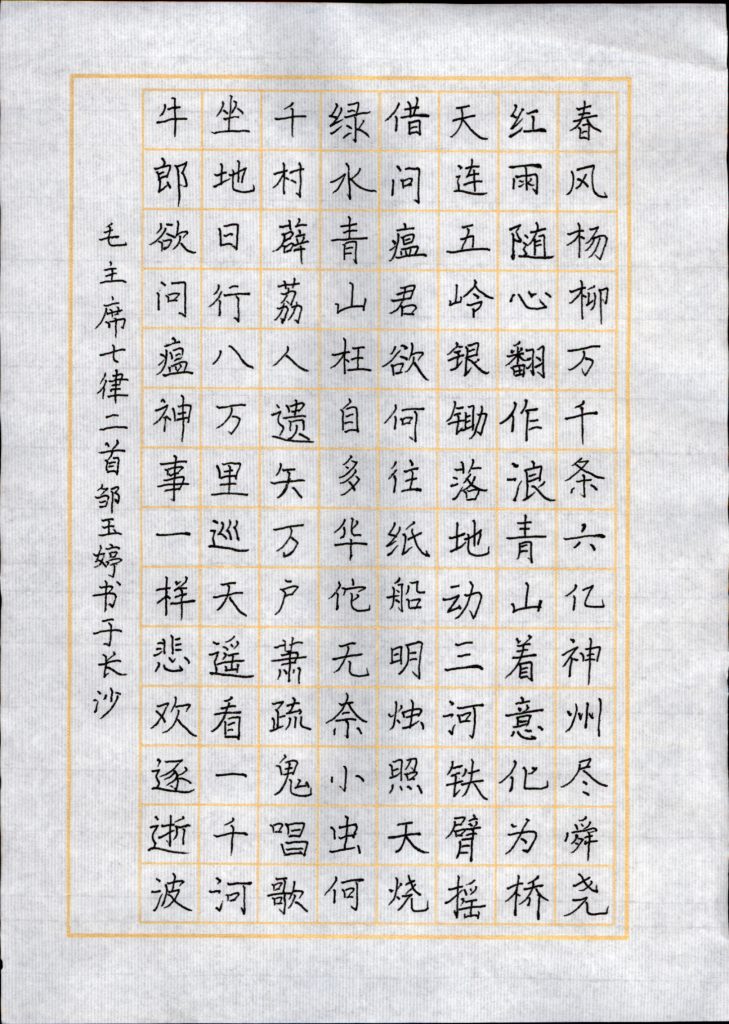 春风杨柳万千条六亿神州尽舜尧
红雨随心翻作浪青山着意化为桥
天连五岭银锄落地动三河铁臂摇
借问瘟君欲何往纸船明烛照天烧
绿水青山枉自多华佗无奈小虫何
千村薜荔人遗矢万户萧疏鬼唱歌
坐地日行八万里巡天遥看一千河
牛郎欲问瘟神事一样悲欢逐逝波
毛主席七律二首邹玉婷书于长沙